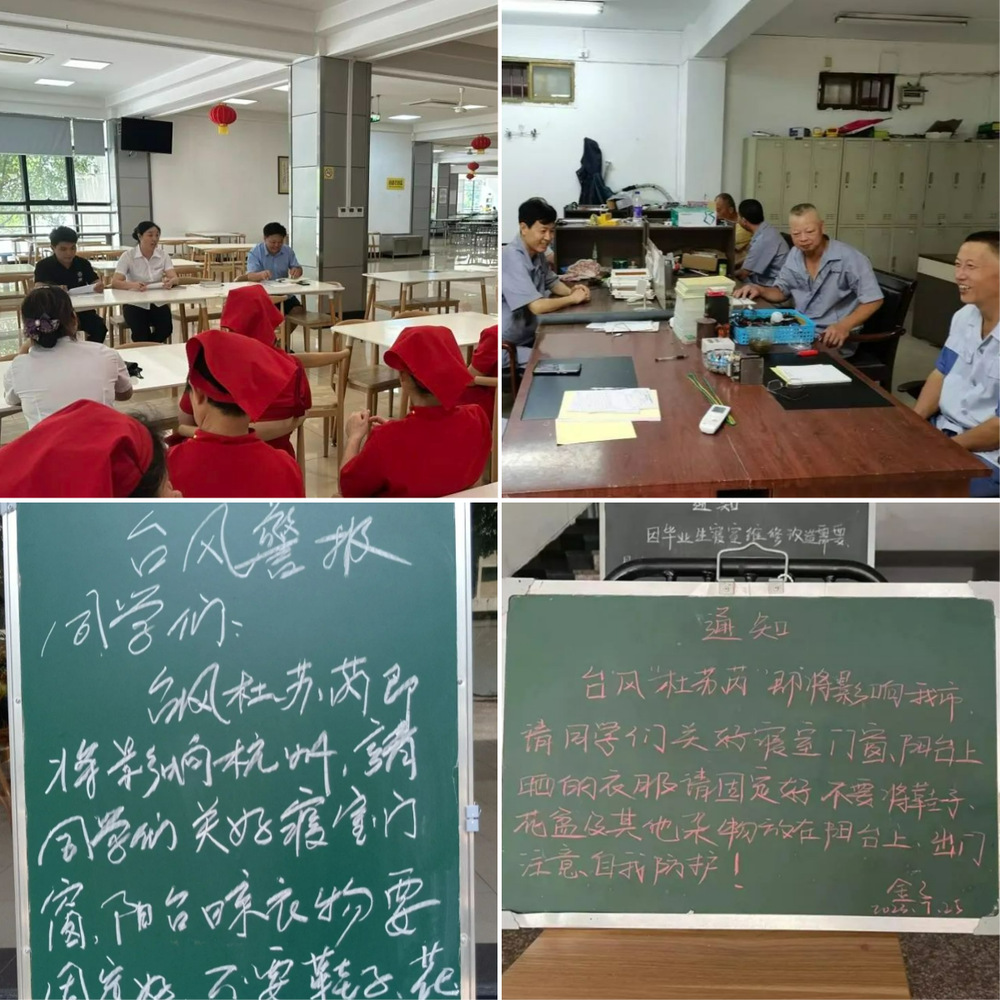 台风警报
同学们:
台风杜苏芮即
将影响杭州,請
同学们关好寝室门
窗,阳台晾衣物要
固定好,不要鞋子、花
通知
因毕业生寝室维修改造需要,
通知
台风“杜苏芮”即将影响我市,
请同学们关好寝室门窗,阳台上
晒的衣服请固定好不要将鞋子、
花盆及其他杂物放在阳台上,出门
注意自我防护!